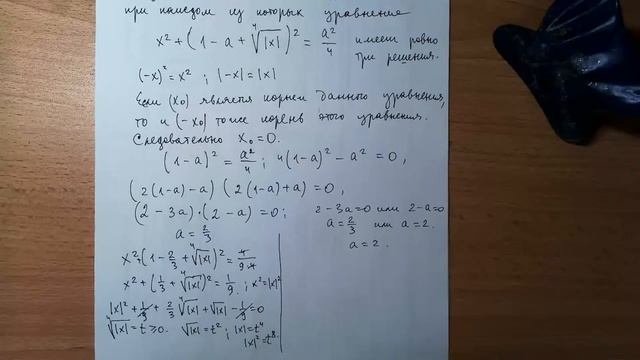 при каждом из которых уравнение
x² + (1 - a + ⁴√|x|)² = a²/4 имеет ровно три решения.
(-x)² = x² ; |-x| = |x|
Если (x₀) является корнем данного уравнения,
то и (-x₀) тоже корень этого уравнения.
Следовательно x₀ = 0.
(1-a)² = a²/4 ; 4(1-a)² - a² = 0,
(2(1-a)-a) (2(1-a)+a) = 0,
(2-3a)·(2-a) = 0; 2-3a=0 или 2-a=0
a = 2/3 или a = 2.
a = 2/3
a = 2.
x² + (1 - 2/3 + ⁴√|x|)² = 4/9·4
x² + (1/3 + ⁴√|x|)² = 1/9. ; x² = |x|²
|x|² + 1/9 + 2/3 ⁴√|x| + √|x| - 1/9 = 0
⁴√|x| = t ≥ 0. √|x| = t² ; |x| = t⁴
|x|² = t⁸.